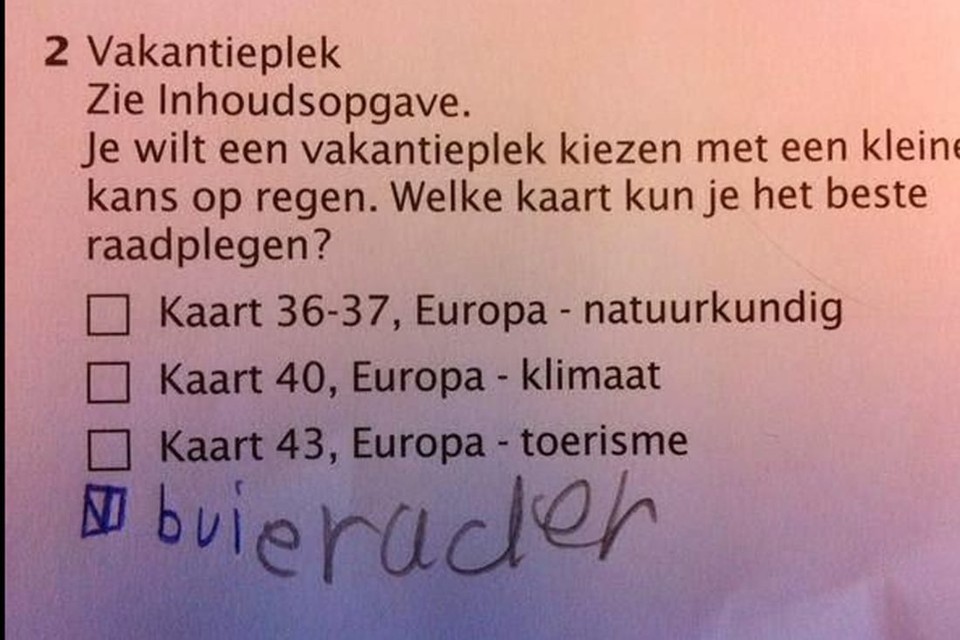 2 Vakantieplek
Zie Inhoudsopgave.
Je wilt een vakantieplek kiezen met een kleine
kans op regen. Welke kaart kun je het beste
raadplegen?
Kaart 36-37, Europa - natuurkundig
Kaart 40, Europa - klimaat
Kaart 43, Europa - toerisme
buierader